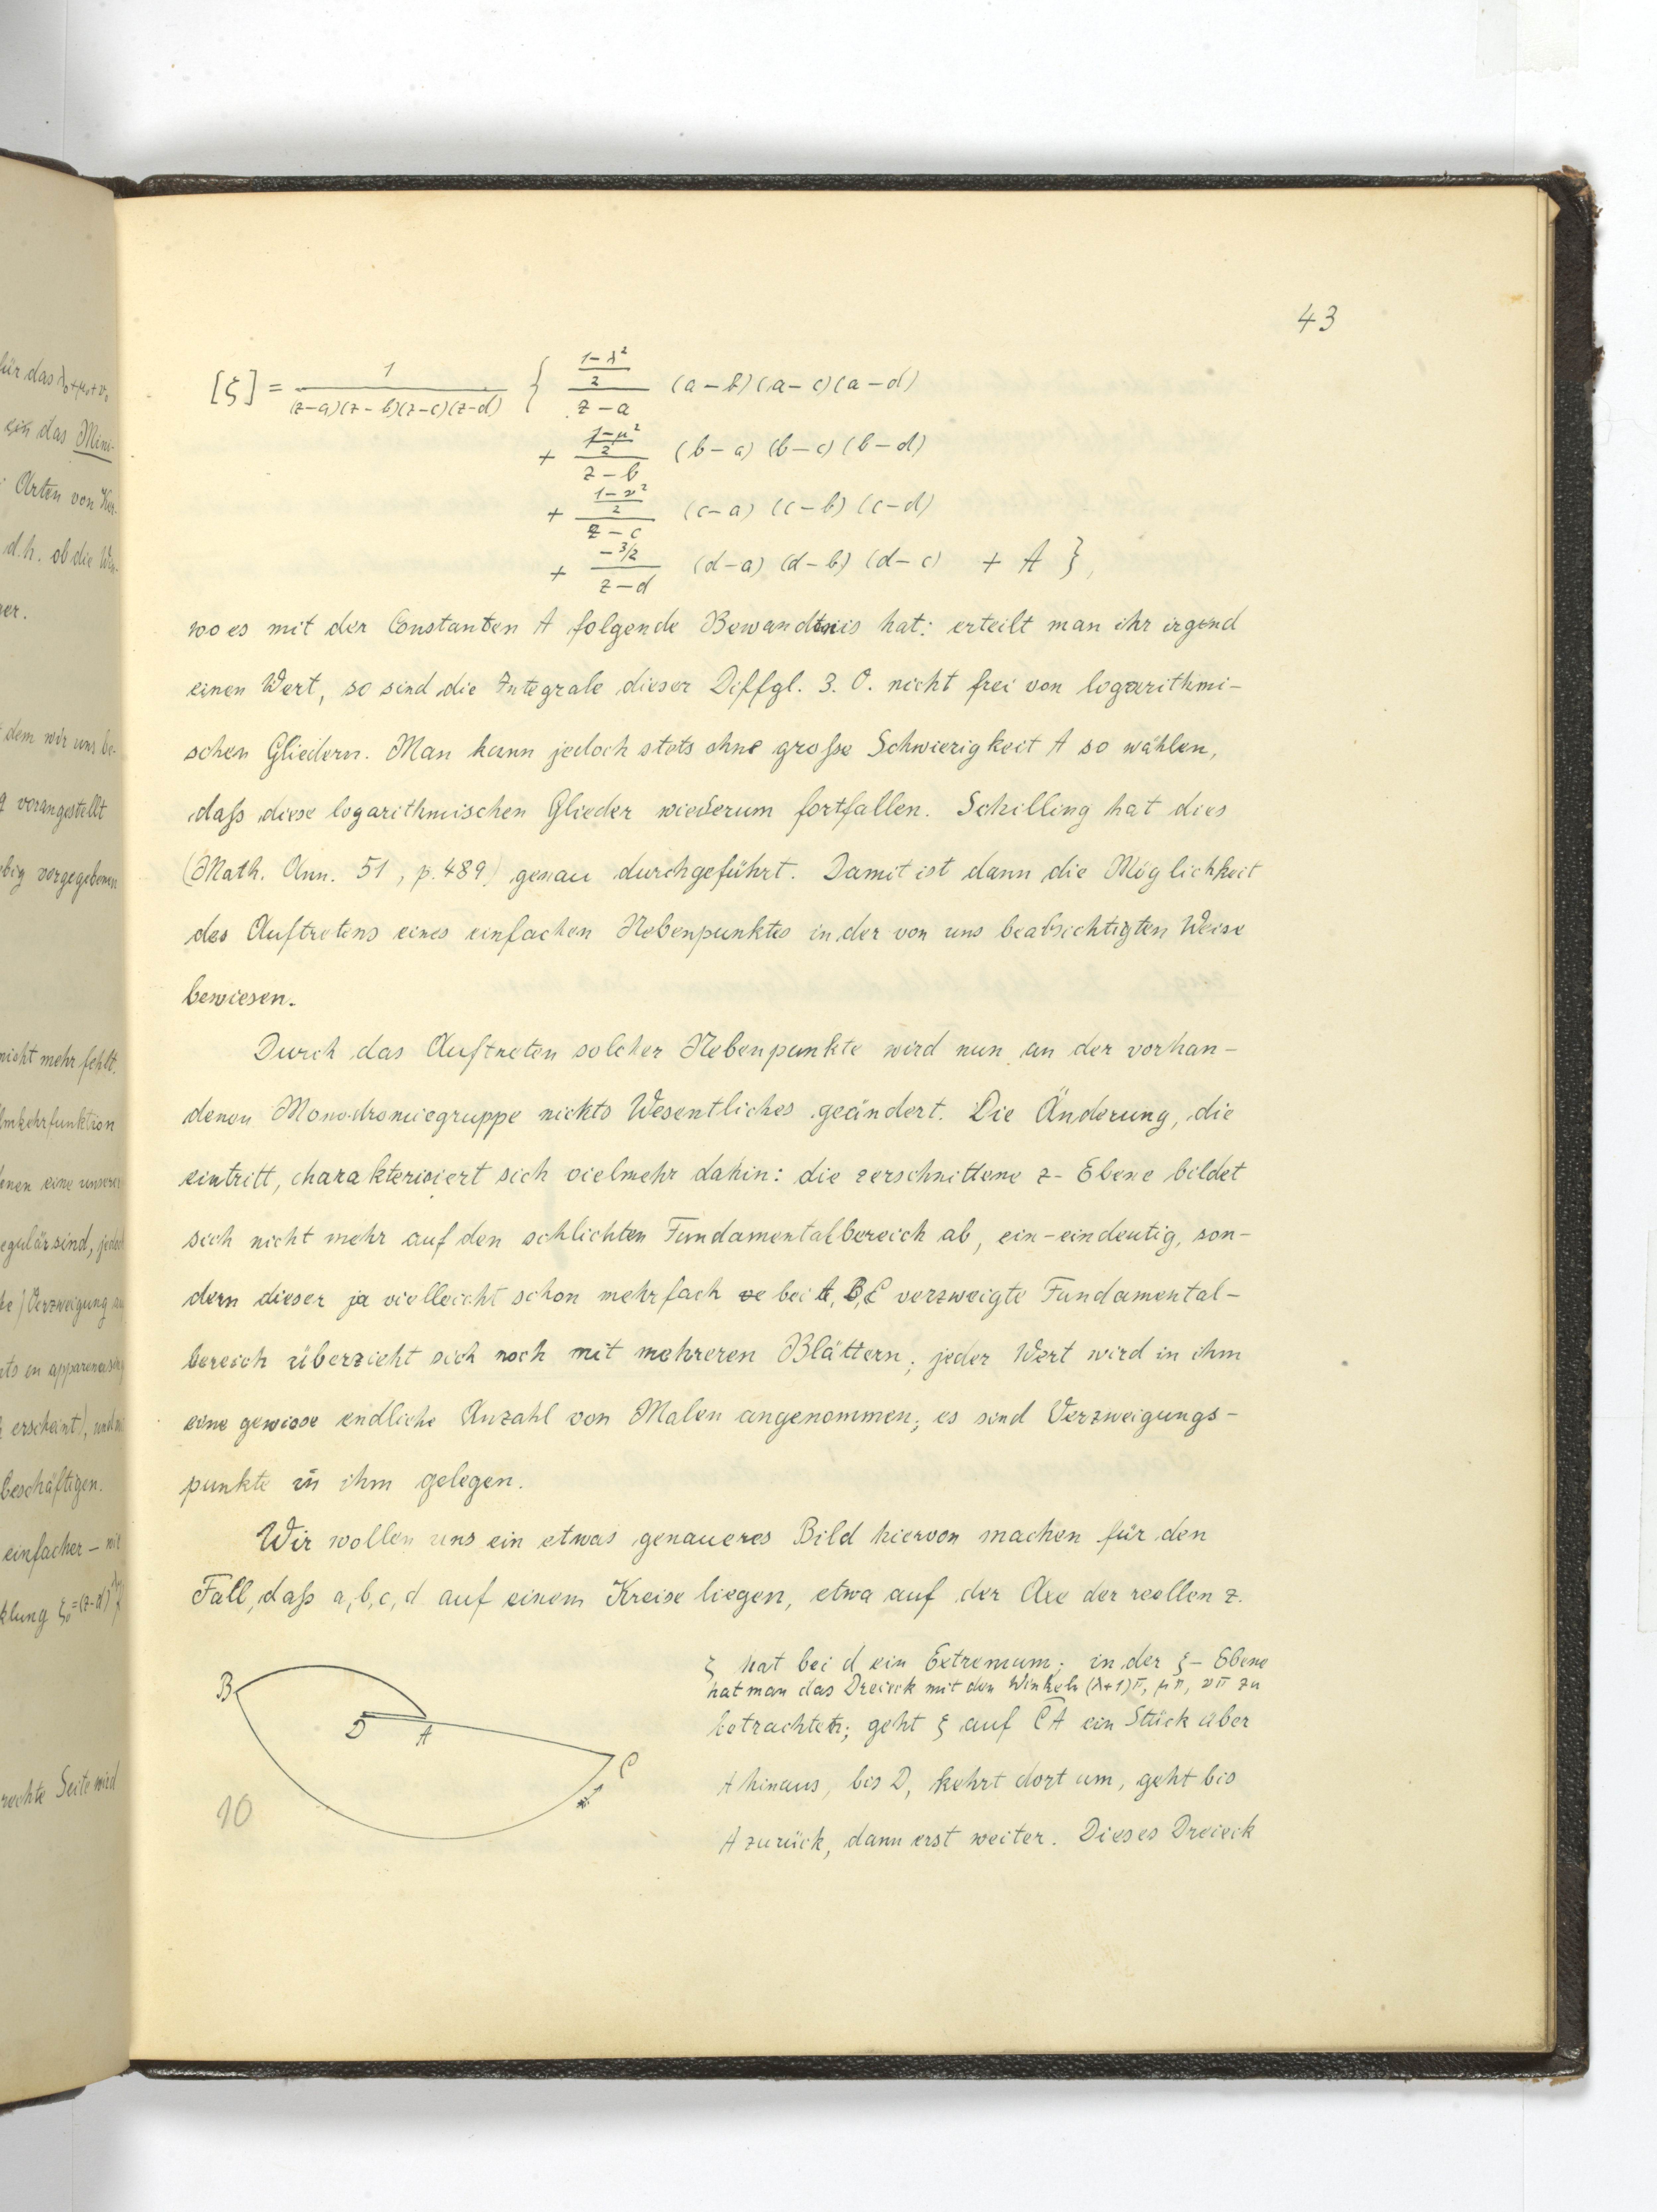 43
[ζ] = 1/((z-a)(z-b)(z-c)(z-d)) { ((1-λ²)/2)/(z-a) (a-b)(a-c)(a-d)
+ ((1-μ²)/2)/(z-b) (b-a)(b-c)(b-d)
+ ((1-ν²)/2)/(z-c) (c-a)(c-b)(c-d)
+ (-3/2)/(z-d) (d-a)(d-b)(d-c) + A },
wo es mit der Constanten A folgende Bewandtnis hat: erteilt man ihr irgend
einen Wert, so sind die Integrale dieser Diffgl. 3. O. nicht frei von logarithmi-
schen Gliedern. Man kann jedoch stets ohne große Schwierigkeit A so wählen,
daß diese logarithmischen Glieder wiederum fortfallen. Schilling hat dies
(Math. Ann. 51, p. 489) genau durchgeführt. Damit ist dann die Möglichkeit
des Auftretens eines einfachen Nebenpunktes in der von uns beabsichtigten Weise
bewiesen.
Durch das Auftreten solcher Nebenpunkte wird nun an der vorhan-
denen Monodromiegruppe nichts Wesentliches geändert. Die Änderung, die
eintritt, charakterisiert sich vielmehr dahin: die zerschnittene z-Ebene bildet
sich nicht mehr auf den schlichten Fundamentalbereich ab, ein-eindeutig, son-
dern dieser ja vielleicht schon mehrfach bei A, B, C verzweigte Fundamental-
bereich überzieht sich noch mit mehreren Blättern; jeder Wert wird in ihm
eine gewisse endliche Anzahl von Malen angenommen; es sind Verzweigungs-
punkte in ihm gelegen.
Wir wollen uns ein etwas genaueres Bild hiervon machen für den
Fall, daß a, b, c, d auf einem Kreise liegen, etwa auf der Axe der reellen z.
ζ hat bei d ein Extremum; in der ζ-Ebene
hat man das Dreieck mit den Winkeln (λ+1)π, μπ, νπ zu
betrachten; geht ζ auf CA ein Stück über
A hinaus, bis D, kehrt dort um, geht bis
A zurück, dann erst weiter. Dieses Dreieck
B
D
A
C
10
für das λ₀+μ₀+ν₀
das Mini-
Arten von
d.h. ob die
dem wir uns be-
vorangestellt
vorgegebenen
nicht mehr fehlt.
Umkehrfunktion
eine unserer
regulär sind,
Verzweigung
erscheint), und
beschäftigen.
einfacher – mit
rechte Seite wird